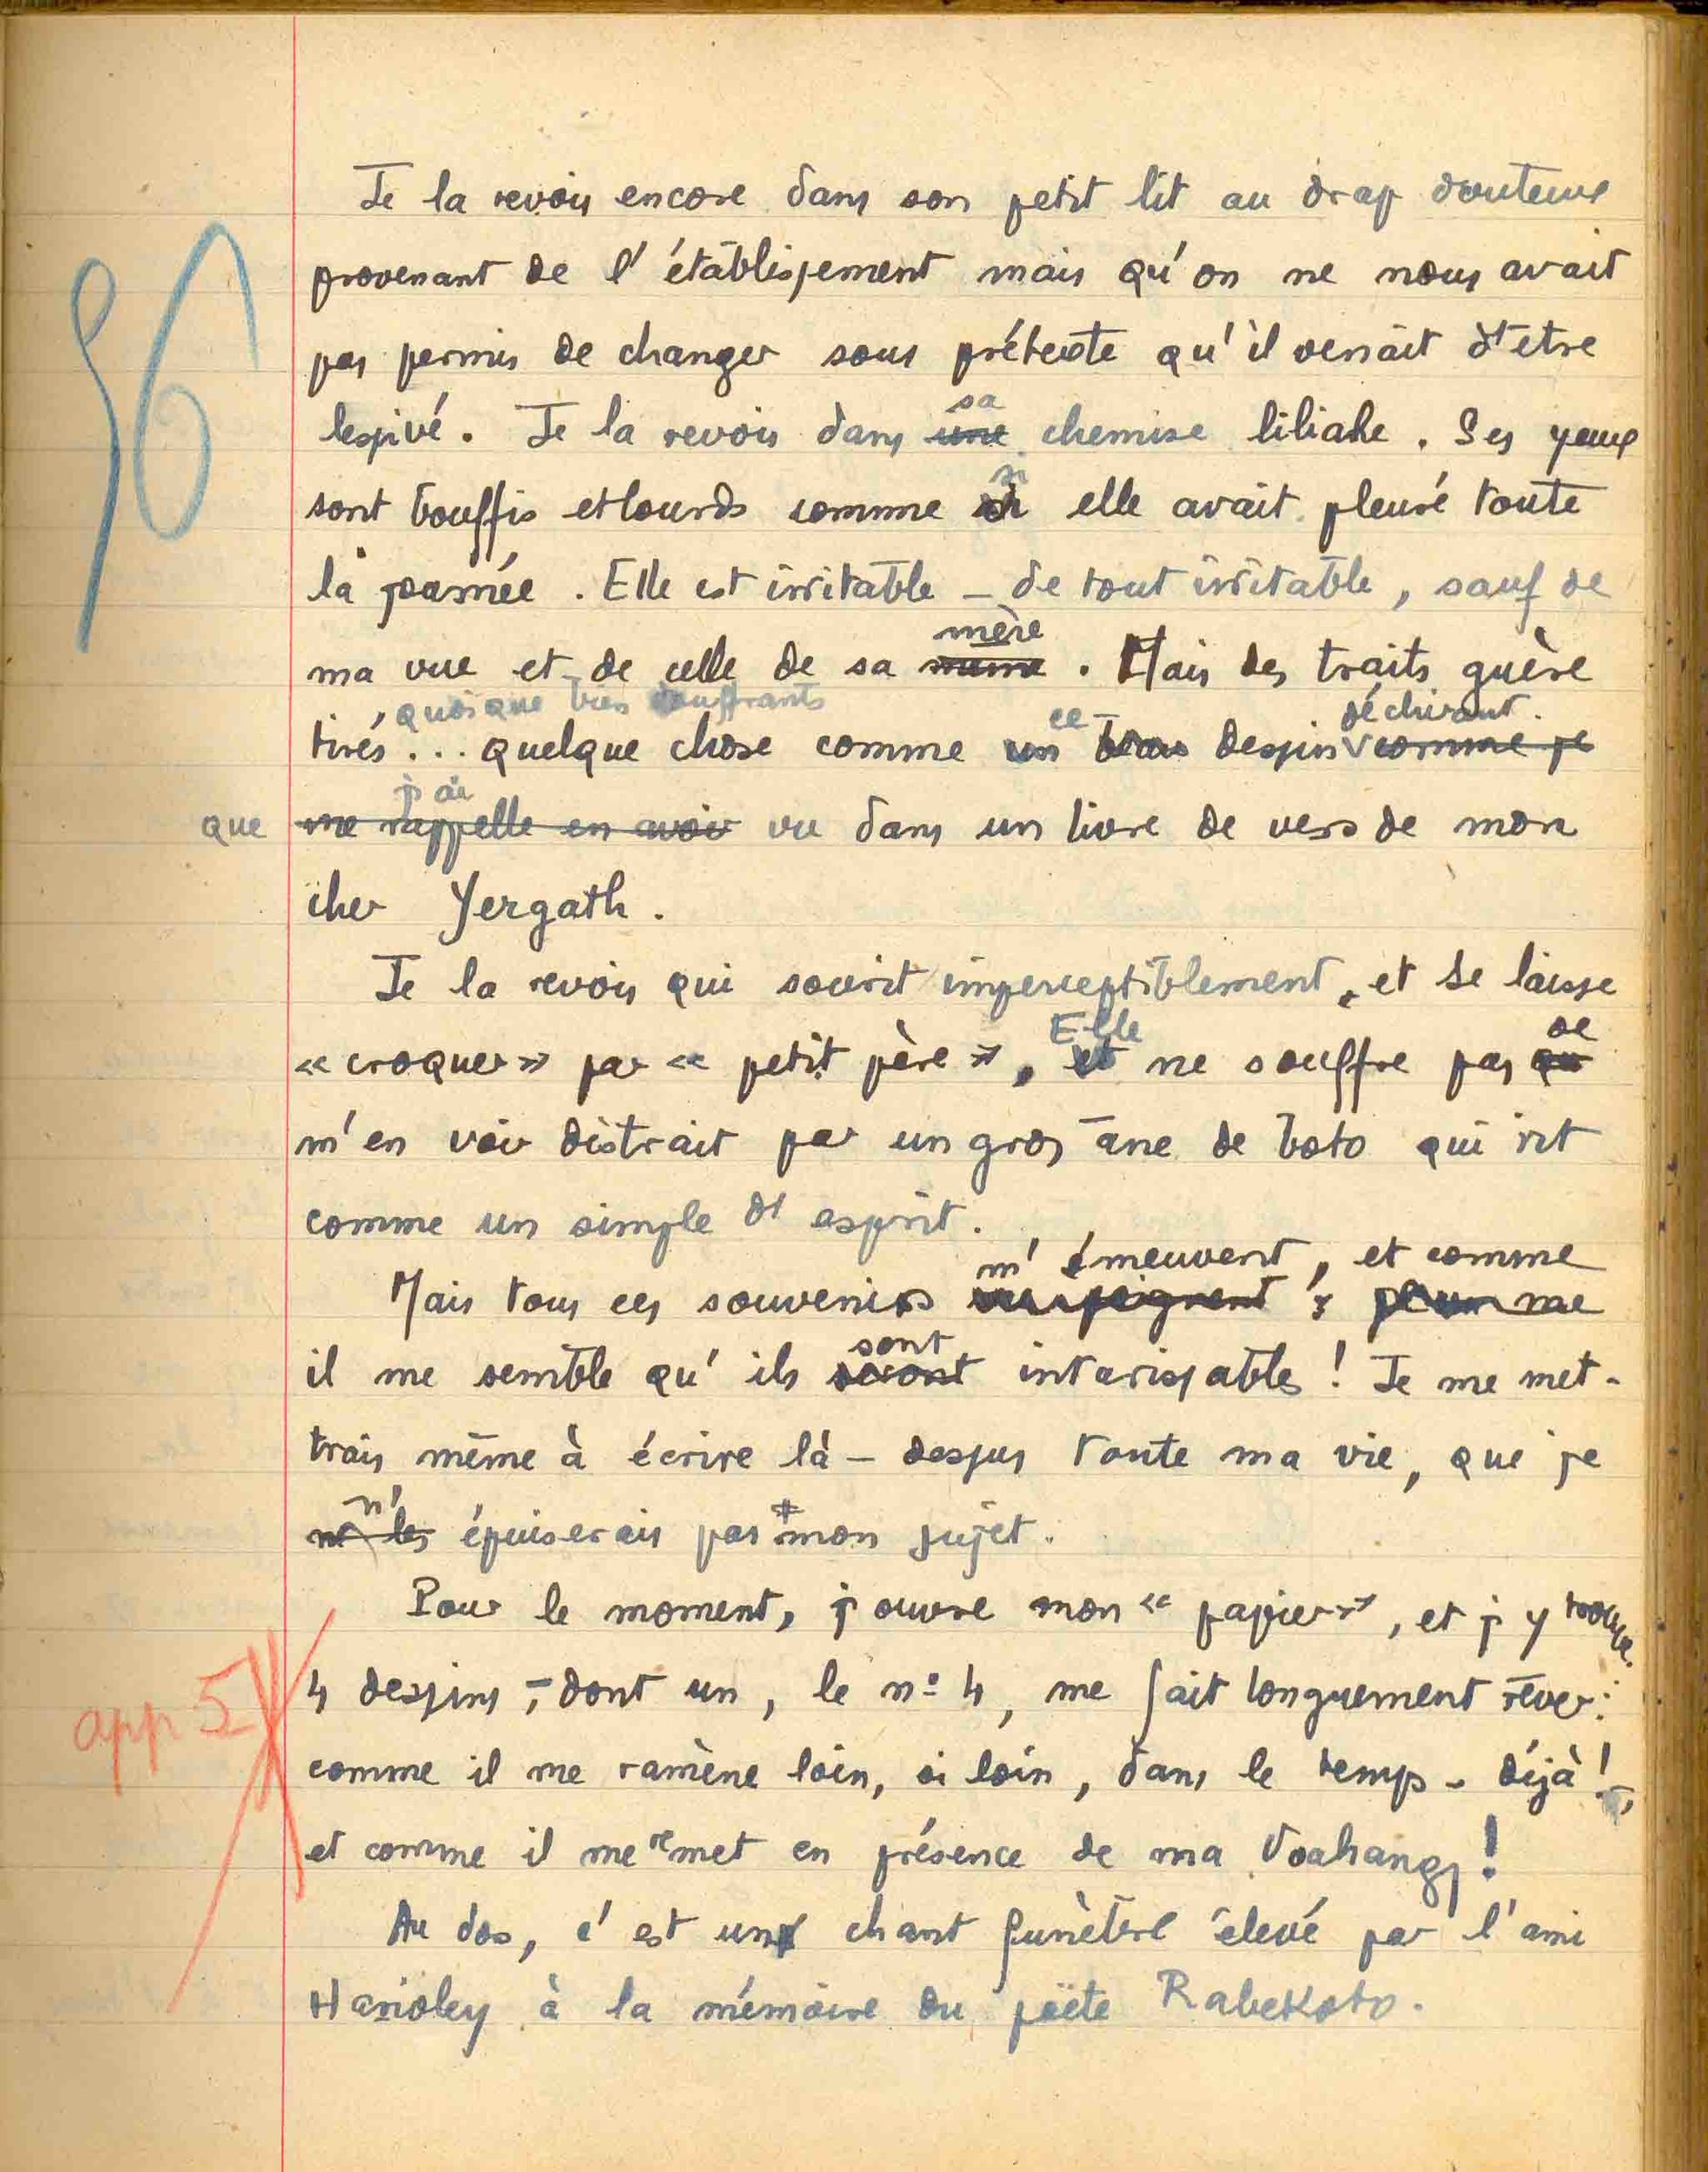 Je la revois encore dans son petit lit au drap douteux
provenant de l'établissement mais qu'on ne nous avait
pas permis de changer sous prétexte qu'il venait d'être
lessivé. Je la revois dans une sa chemise liliale. Ses yeux
sont bouffis et lourds comme si elle avait pleuré toute
la journée. Elle est irritable – de tout irritable, sauf de
ma vue et de celle de sa mère. Mais des traits guère
tirés, quoique très souffrants... quelque chose comme un ce beau dessin déchirant comme je
que me rappelle en avoir j'ai vu dans un livre de vers de mon
cher Yergath.
Je la revois qui sourit imperceptiblement, et se laisse
« croquer » par « petit père », et Elle ne souffre pas de
m'en voir distrait par un gros âne de boto qui rit
comme un simple d'esprit.
Mais tous ces souvenirs m'émeuvent, et comme
il me semble qu'ils seront sont intarissables ! Je me met-
trais même à écrire là-dessus toute ma vie, que je
ne les n'épuiserais pas mon sujet.
Pour le moment, j'ouvre mon « papier », et j'y trouve
4 dessins, – dont un, le nº 4, me fait longuement rêver :
comme il me ramène loin, si loin, dans le temps – déjà ! –,
et comme il me remet en présence de ma Voahangy !
Au dos, c'est un chant funèbre élevé par l'ami
Harioley à la mémoire du poëte RabeKoto.
56
app 5